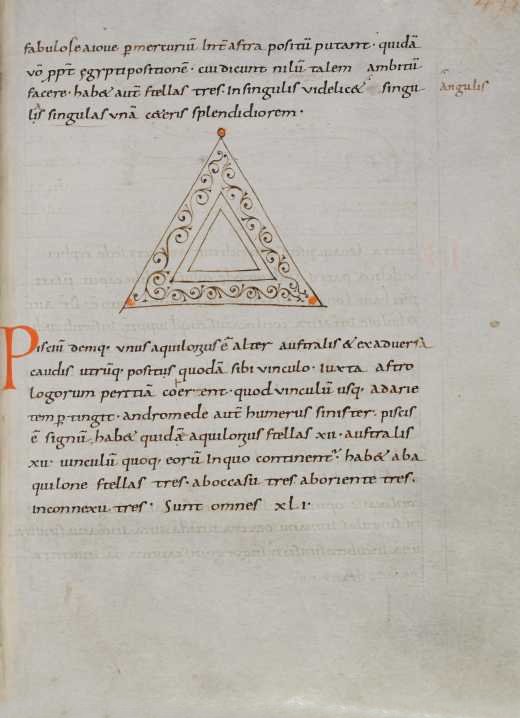 fabulose aioue p̄ mercuriū inter astra positū putant · quidā
vō ꝓpt̄ egypti positionē · cui dicunt nilū talem ambitū
facere · habet aut̄ stellas tres · in singulis videlicet singu-
angulis
lis singulas unā ceteris splendidiorem ·
Pisciū deniq· unus aquilonius ē alter australis & ex adversa
caudis utriq· positus quodā sibi vinculo · iuxta astro
logorum pertiā coerent · quod vinculū usq· ad arie
tem p̄tingit · andromede aut̄ humerus sinister · piscis
ē signū, habet quidā aquilonius stellas xii · australis
xii · uinculū quoq· eorū in quo continent · habet ab a
quilone stellas tres · ab occasu tres ab oriente tres ·
in connexu tres · Sunt omnes xli ·